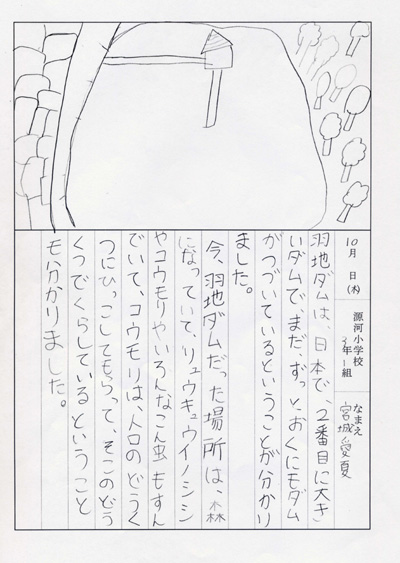 10月 日(木) 源河小学校 3年1組 なまえ 宮城愛夏
羽地ダムは、日本で、2番目に大き
いダムで、まだ、ずっとおくにもダム
がつづいているということが分かり
ました。
今、羽地ダムだった場所は、森
になっていて、リュウキュウイノシシ
やコウモリやいろんなこん虫もすん
でいて、コウモリは、人口のどうく
つにひっこしてもらって、そこのどう
くつでくらしている ということ
も分かりました。